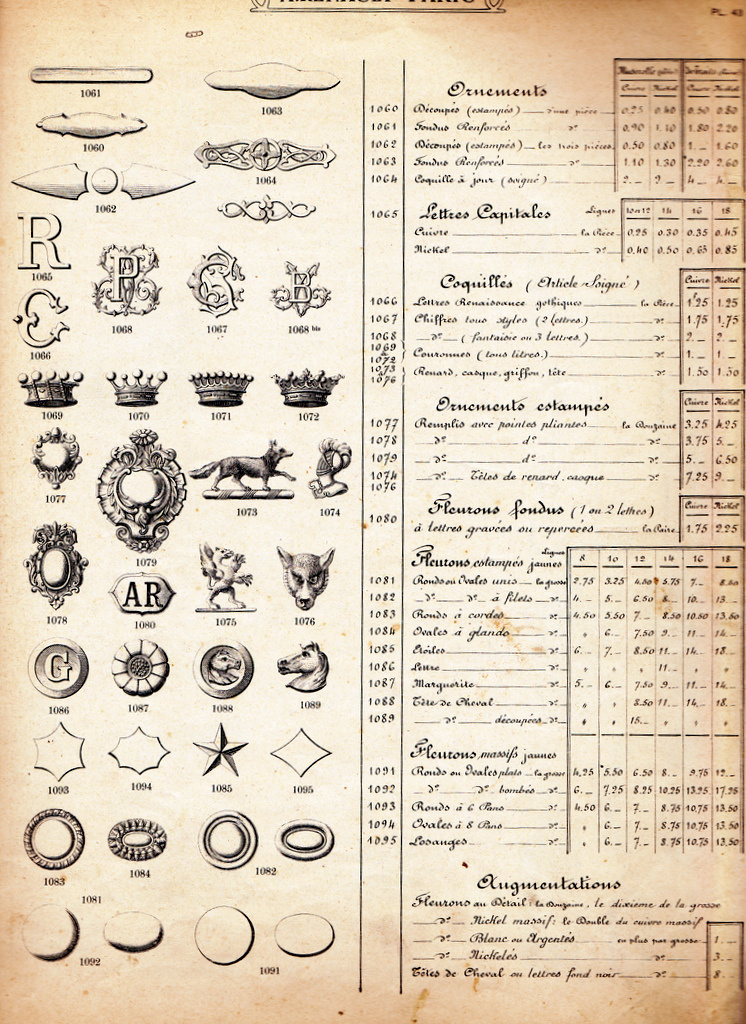 PL. 43
1061
1063
1060
1064
1062
R
1065
1068
1067
1068 bis
1066
1069
1070
1071
1072
1077
1073
1074
1079
AR
1078
1080
1075
1076
G
1086
1087
1088
1089
1093
1094
1085
1095
1083
1084
1082
1081
1092
1091
Ornements
Cuivre Nickel Cuivre Nickel
1060 Découpés (estampés) d'une pièce 0.25 0.40 0.50 0.80
1061 Fondus Renforcés do 0.90 1.10 1.80 2.20
1062 Découpés (estampés) les trois pièces 0.50 0.80 1._ 1.60
1063 Fondus Renforcés do 1.10 1.30 2.20 2.60
1064 Coquille à jour (soigné) 2._ 2._ 4._ 4._
1065 Lettres Capitales Lignes 10 et 12 14 16 18
Cuivre la Pièce 0.25 0.30 0.35 0.45
Nickel do 0.40 0.50 0.65 0.85
Coquillés (Article Soigné) Cuivre Nickel
1066 Lettres Renaissance gothiques la Pièce 1.25 1.25
1067 Chiffres tous styles (2 lettres.) do 1.75 1.75
1068 do (fantaisie ou 3 lettres.) do 2._ 2._
1069 à 1072 Couronnes (tous titres.) do 1._ 1._
1073 à 1076 Renard, casque, griffon, tête do 1.50 1.50
Ornements estampés Cuivre Nickel
1077 Remplis avec pointes pliantes la Douzaine 3.25 4.25
1078 do do do 3.75 5._
1079 do do do 5._ 6.50
1074 1076 do Têtes de renard, casque do 7.25 9._
Fleurons fondus (1 ou 2 lettres) Cuivre Nickel
1080 à lettres gravées ou repercées la Paire 1.75 2.25
Fleurons estampés jaunes Lignes 8 10 12 14 16 18
1081 Ronds ou Ovales unis la grosse 2.75 3.25 4.50 5.75 7._ 8.50
1082 do do à filets do 4._ 5._ 6.50 8._ 10._ 13._
1083 Ronds à cordes do 4.50 5.50 7._ 8.50 10.50 13.50
1084 Ovales à glands do " 6._ 7.50 9._ 11._ 14._
1085 Etoiles do 6._ 7._ 8.50 11._ 14._ 18._
1086 Lettre do " " " 11._ " "
1087 Marguerite do 5._ 6._ 7.50 9._ 11._ 14._
1088 Tête de Cheval do " " 8.50 11._ 14._ 18._
1089 do découpées do " " 15._ " " "
Fleurons massifs jaunes
1091 Ronds ou Ovales plats la grosse 4.25 5.50 6.50 8._ 9.75 12._
1092 do do bombés do 6._ 7.25 8.25 10.25 13.25 17.25
1093 Ronds à 6 Pans do 4.50 6._ 7._ 8.75 10.75 13.50
1094 Ovales à 8 Pans do " 6._ 7._ 8.75 10.75 13.50
1095 Losanges do " 6._ 7._ 8.75 10.75 13.50
Augmentations
Fleurons au Détail: la Douzaine, le dixième de la grosse
do Nickel massif: le Double du cuivre massif
do Blanc ou Argentés en plus par grosse 1._
do Nickelés do 3._
Têtes de Cheval ou lettres fond noir do 8._